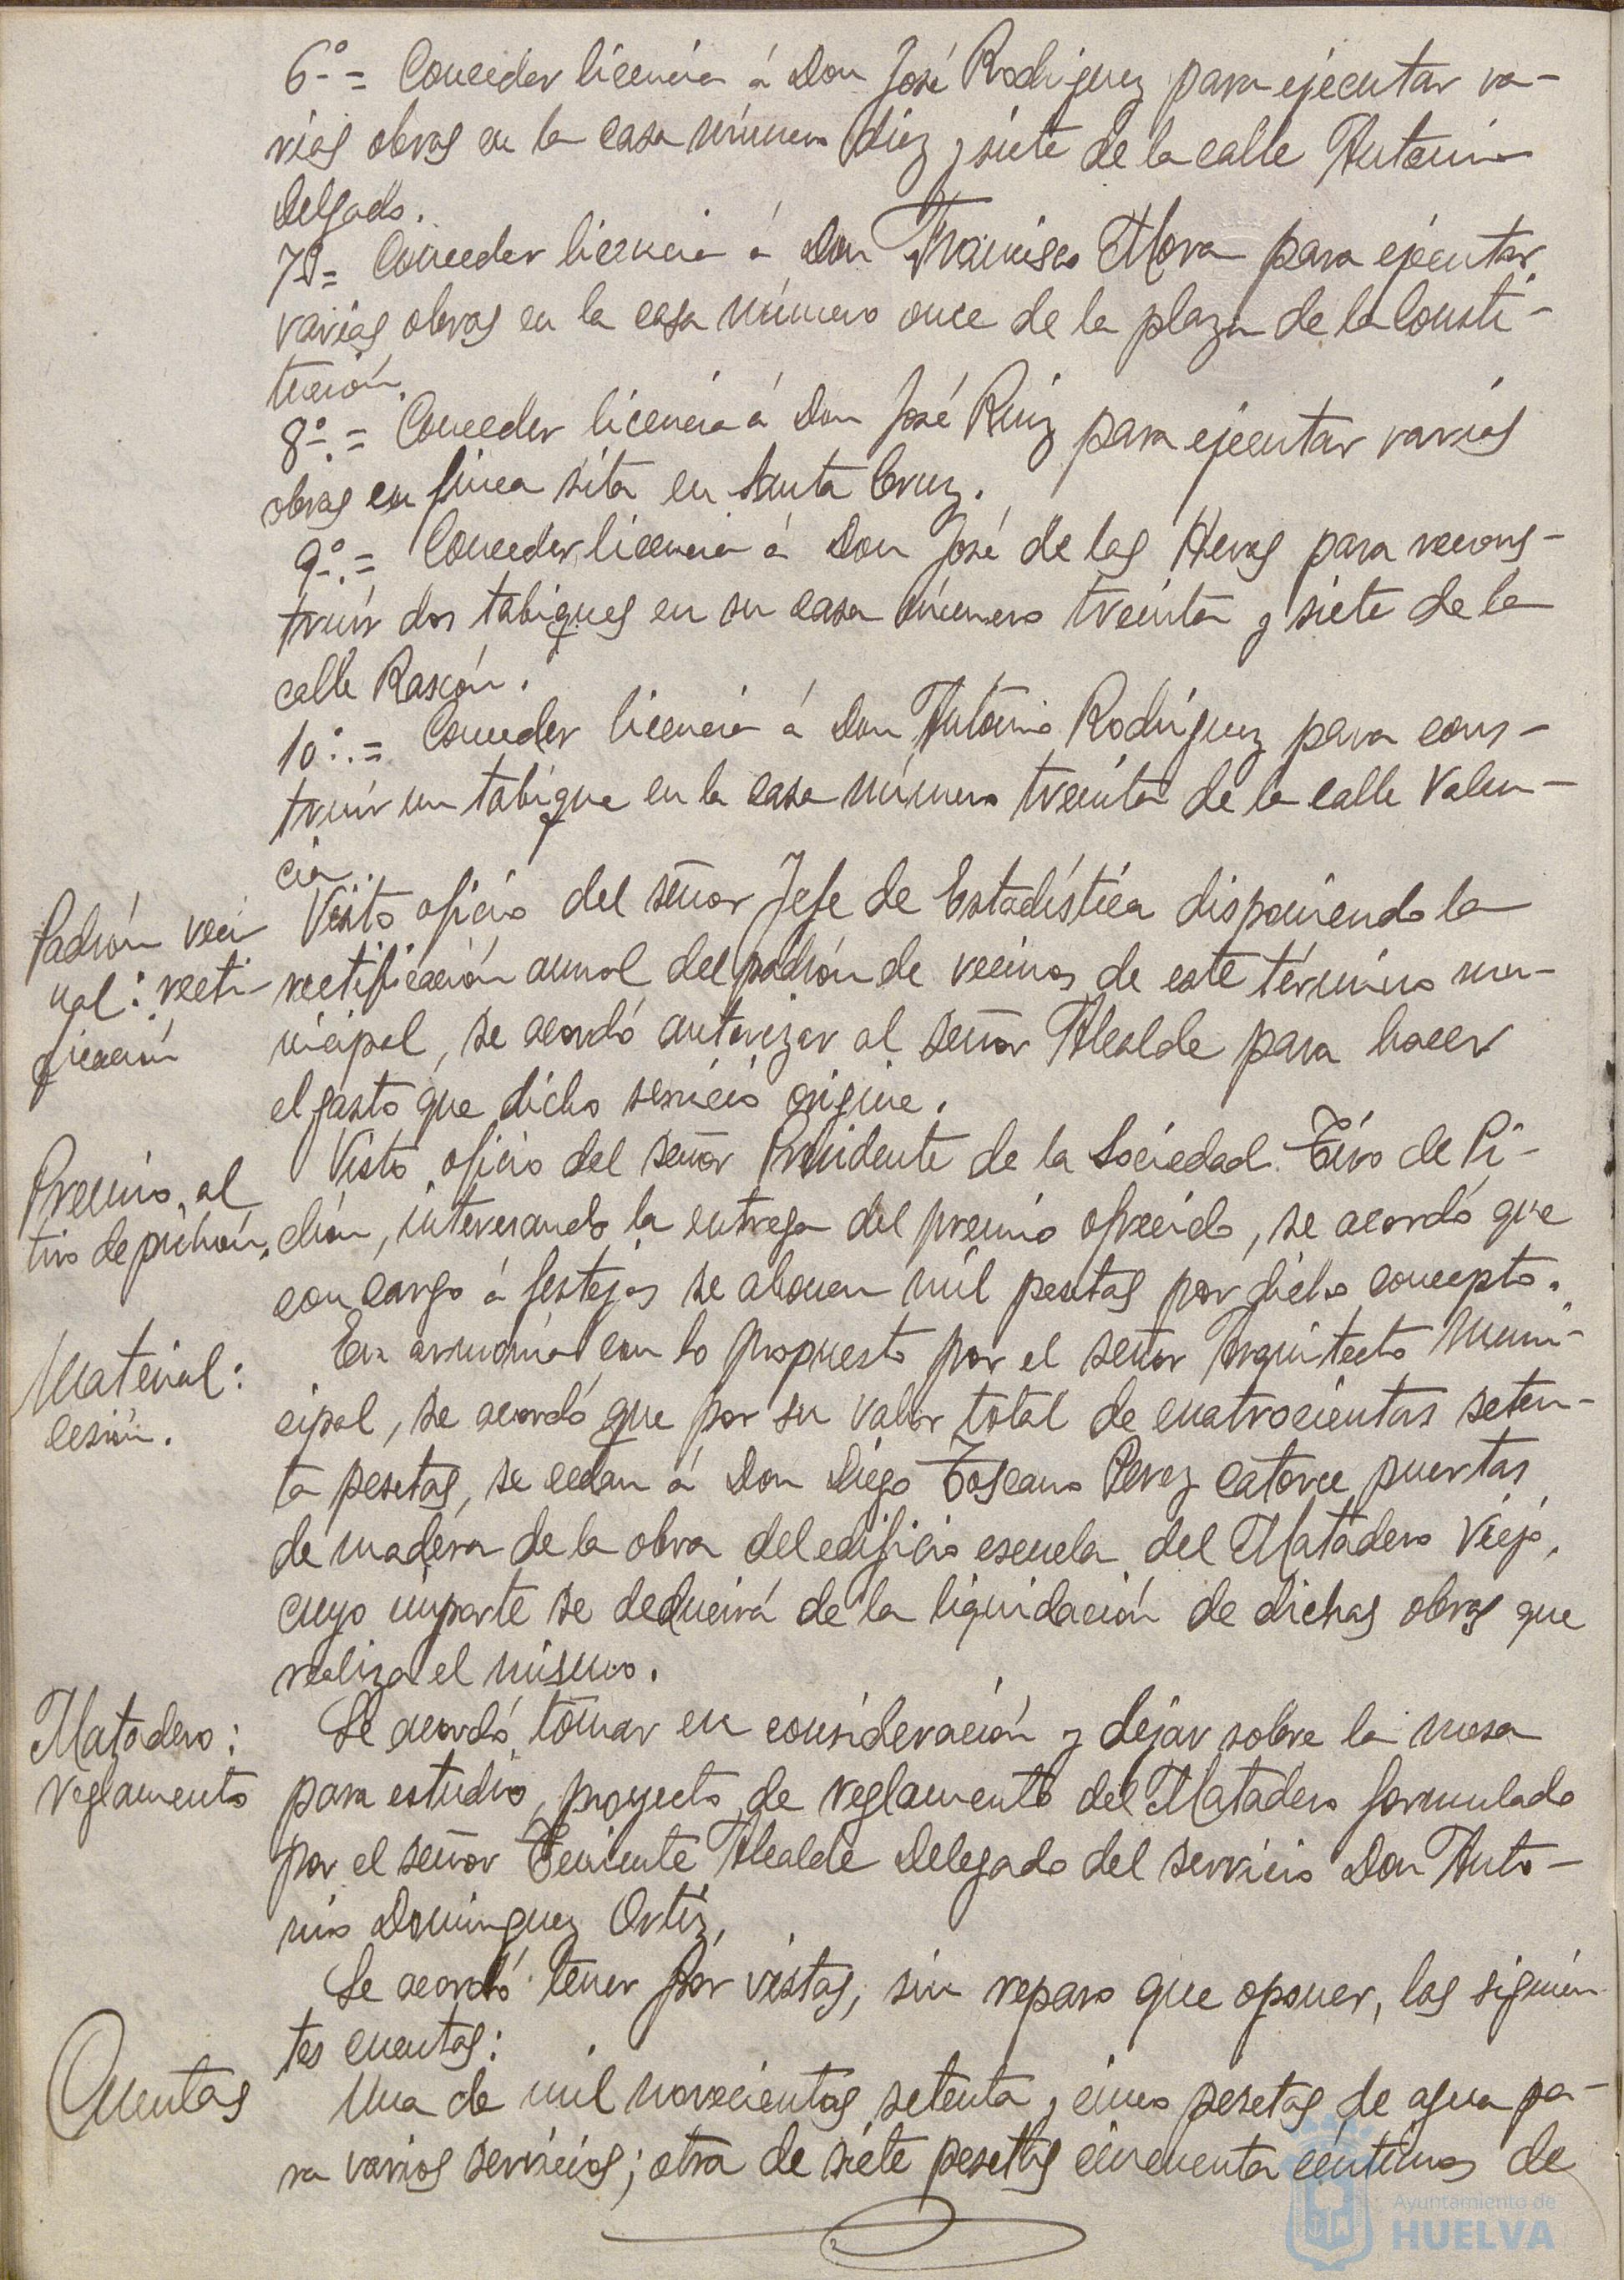 6º.= Conceder licencia á Don José Rodriguez para ejecutar va-
rias obras en la casa número diez y siete de la calle Antonio
Delgado.
7º= Conceder licencia á Don Francisco Mora para ejecutar
varias obras en la casa número once de la plaza de la Consti-
tución.
8º.= Conceder licencia á Don José Ruiz para ejecutar varias
obras en finca sita en Santa Cruz.
9º.= Conceder licencia á Don José de las Heras para recons-
truir dos tabiques en su casa número treinta y siete de la
calle Rascón.
10º.= Conceder licencia á Don Antonio Rodríguez para cons-
truir un tabique en la casa número treinta de la calle Valen-
cia.
Padrón veci
nal: recti-
ficación
Visto oficio del señor Jefe de Estadística disponiendo la
rectificación anual del padrón de vecinos de este término mu-
nicipal, se acordó autorizar al señor Alcalde para hacer
el gasto que dicho servicio origine.
Premio al
tiro de pichón.
Visto oficio del señor Presidente de la Sociedad Tiro de Pi-
chón, interesando la entrega del premio ofrecido, se acordó que
con cargo á festejos se abonen mil pesetas por dicho concepto.
Material:
cesión.
En armonía con lo propuesto por el señor Arquitecto Muni-
cipal, se acordó que por su valor total de cuatrocientas seten-
ta pesetas, se cedan á Don Diego Toscano Perez catorce puertas
de madera de la obra del edificio escuela del Matadero Viejo,
cuyo importe se deducirá de la liquidación de dichas obras que
realiza el mismo.
Matadero:
reglamento
Se acordó tomar en consideración y dejar sobre la mesa
para estudio, proyecto de reglamento del Matadero formulado
por el señor Teniente Alcalde Delegado del servicio Don Anto-
nio Dominguez Ortiz.
Se acordó tener por vistas, sin reparo que oponer, las siguien
tes cuentas:
Cuentas
Una de mil novecientas setenta y cinco pesetas de agua pa-
ra varios servicios; otra de siete pesetas cincuenta céntimos de
Ayuntamiento de
HUELVA